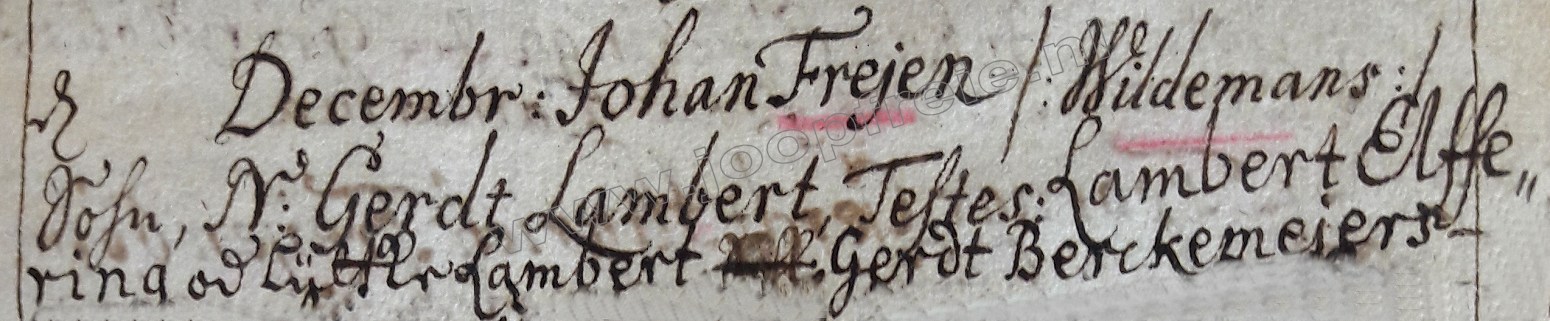 8 Decembr: Johan Frejen /: Wildemans :/
Sohn, N: Gerdt Lambert, Testes: Lambert Elffe„
ring od Lütke Lambert Gerdt Berckemeiers
www.joopfreie.nl